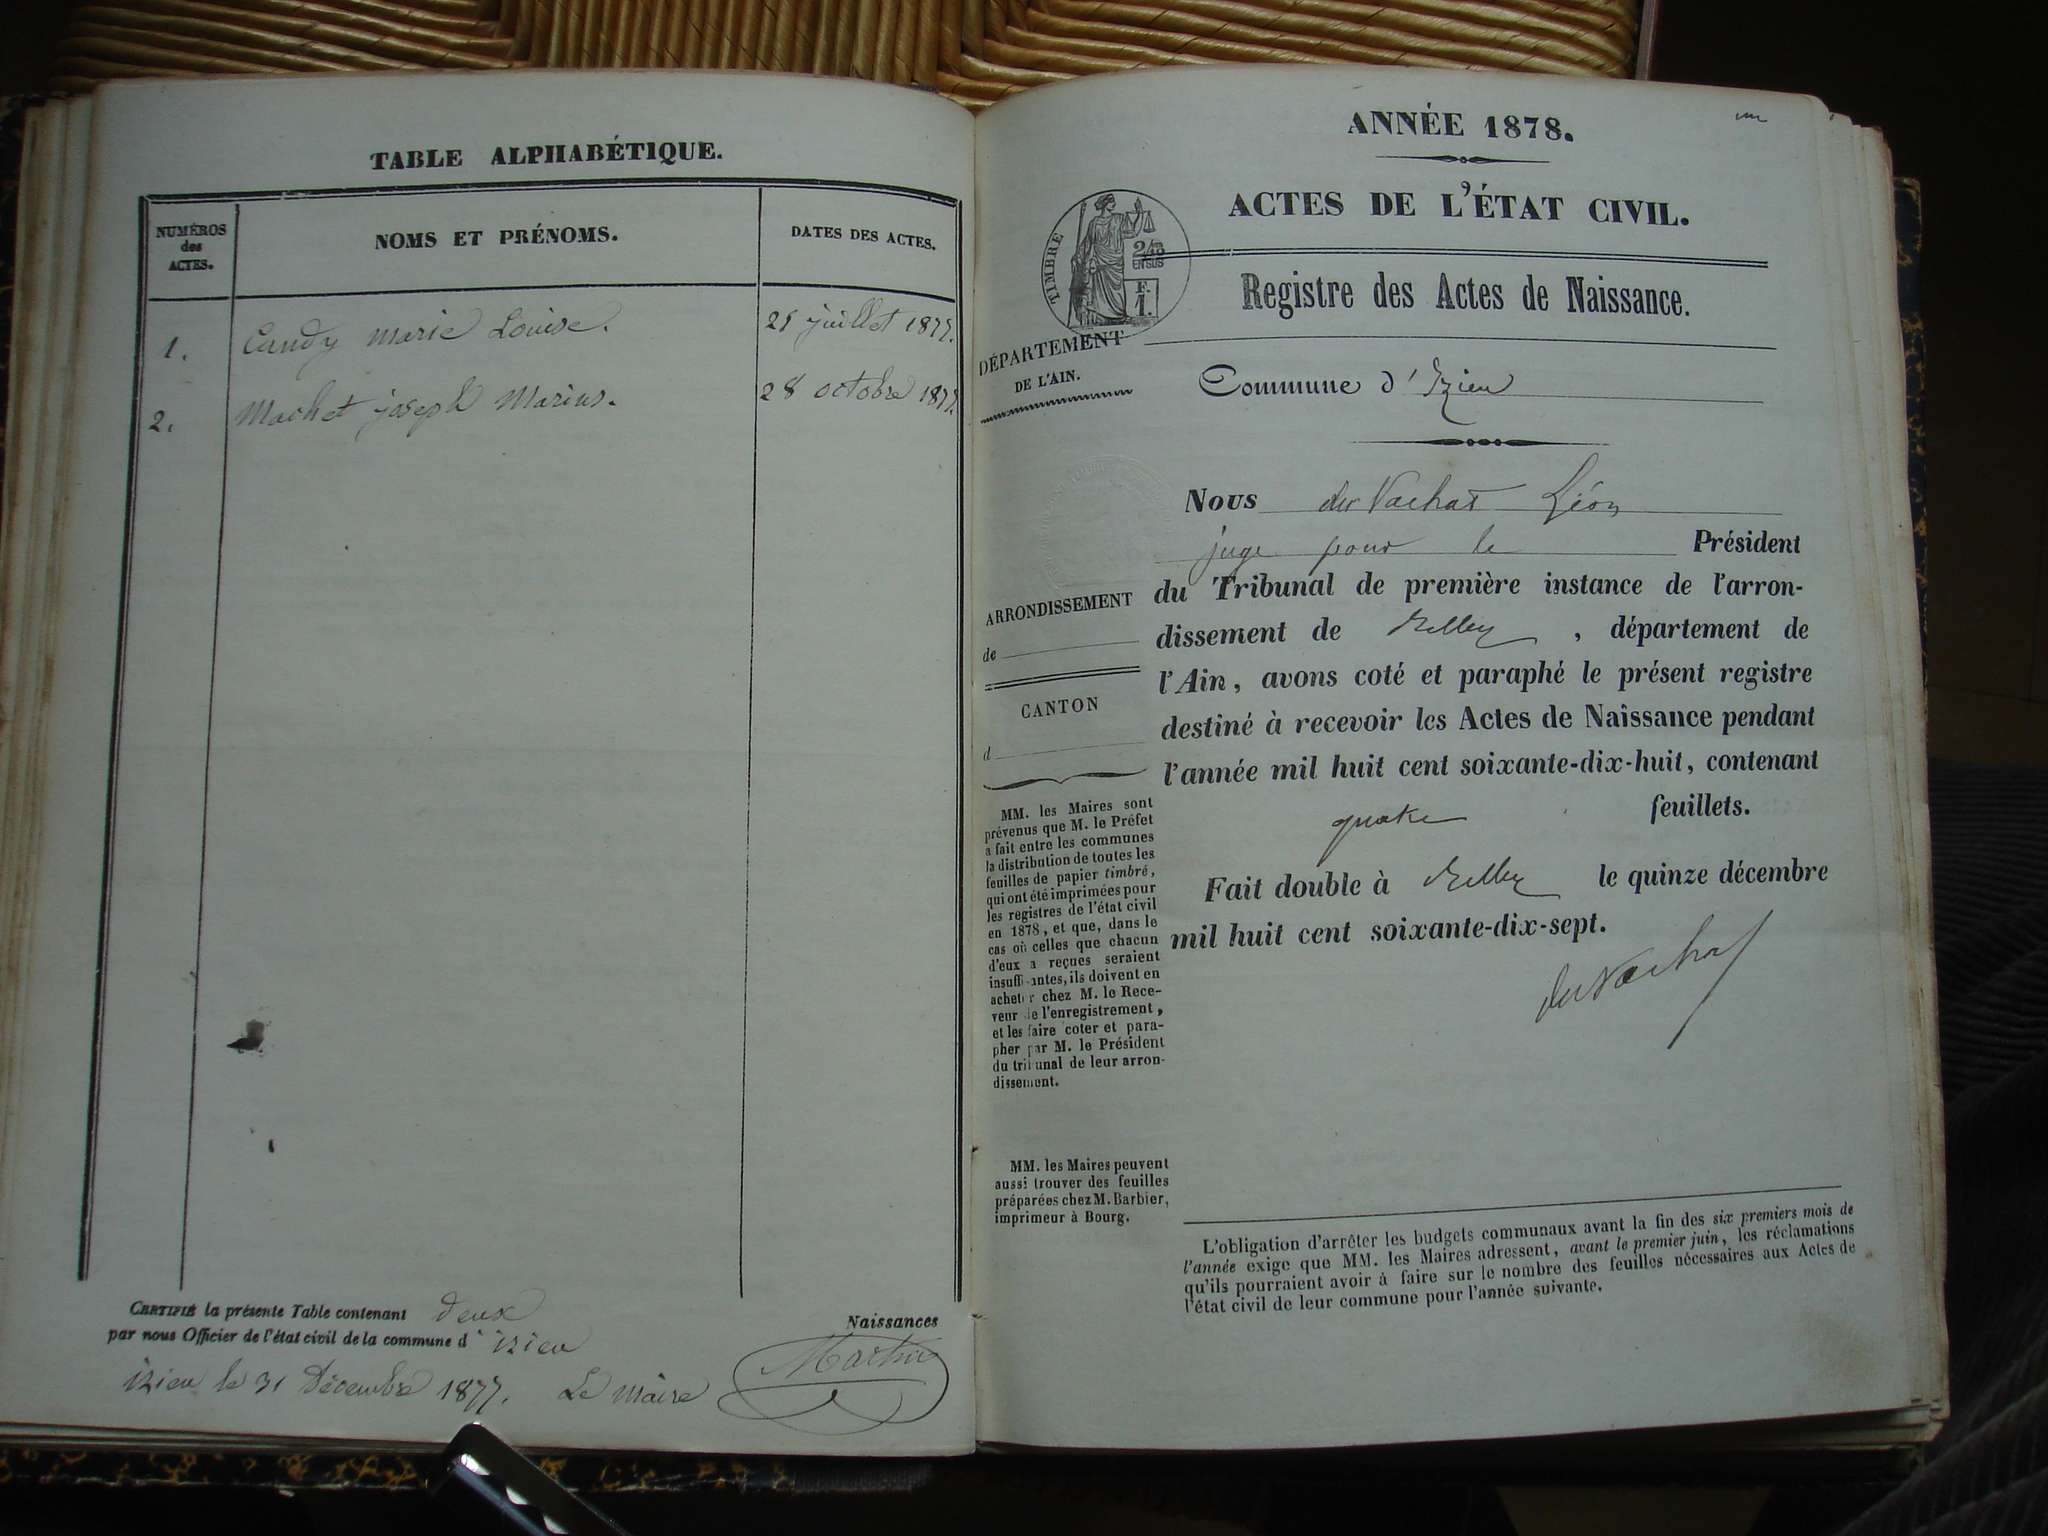 TABLE ALPHABÉTIQUE.
NUMÉROS
des
ACTES.
NOMS ET PRÉNOMS.
DATES DES ACTES.
1. Candy marie Louise. 25 juillet 1877.
2. Machet joseph Marius. 28 octobre 1877.
CERTIFIÉ la présente Table contenant deux Naissances
par nous Officier de l'état civil de la commune d' izieu
izieu le 31 Décembre 1877. Le maire
Martin
un
ANNÉE 1878.
ACTES DE L'ÉTAT CIVIL.
TIMBRE
2/10
EN SUS
F.
1.
Registre des Actes de Naissance.
DÉPARTEMENT
DE L'AIN.
Commune d' Izieu
Nous du Vachat Léon
juge pour le Président
du Tribunal de première instance de l'arron-
dissement de Belley, département de
l'Ain, avons coté et paraphé le présent registre
destiné à recevoir les Actes de Naissance pendant
l'année mil huit cent soixante-dix-huit, contenant
quatre feuillets.
Fait double à Belley le quinze décembre
mil huit cent soixante-dix-sept.
du Vachat
ARRONDISSEMENT
de
CANTON
d
MM. les Maires sont
prévenus que M. le Préfet
a fait entre les communes
la distribution de toutes les
feuilles de papier timbré,
qui ont été imprimées pour
les registres de l'état civil
en 1878, et que, dans le
cas où celles que chacun
d'eux a reçues seraient
insuffisantes, ils doivent en
acheter chez M. le Rece-
veur de l'enregistrement,
et les faire coter et para-
pher par M. le Président
du tribunal de leur arron-
dissement.
MM. les Maires peuvent
aussi trouver des feuilles
préparées chez M. Barbier,
imprimeur à Bourg.
L'obligation d'arrêter les budgets communaux avant la fin des six premiers mois de
l'année exige que MM. les Maires adressent, avant le premier juin, les réclamations
qu'ils pourraient avoir à faire sur le nombre des feuilles nécessaires aux Actes de
l'état civil de leur commune pour l'année suivante.